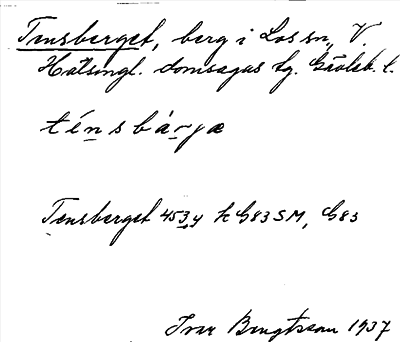 Tensberget, berg i Los sn, V.
Hälsingl. domsagas tg. Gävleb. l.
ténsbárjæ
Tensberget 453y k G83 SM, G83
Ivar Bengtsson 1937